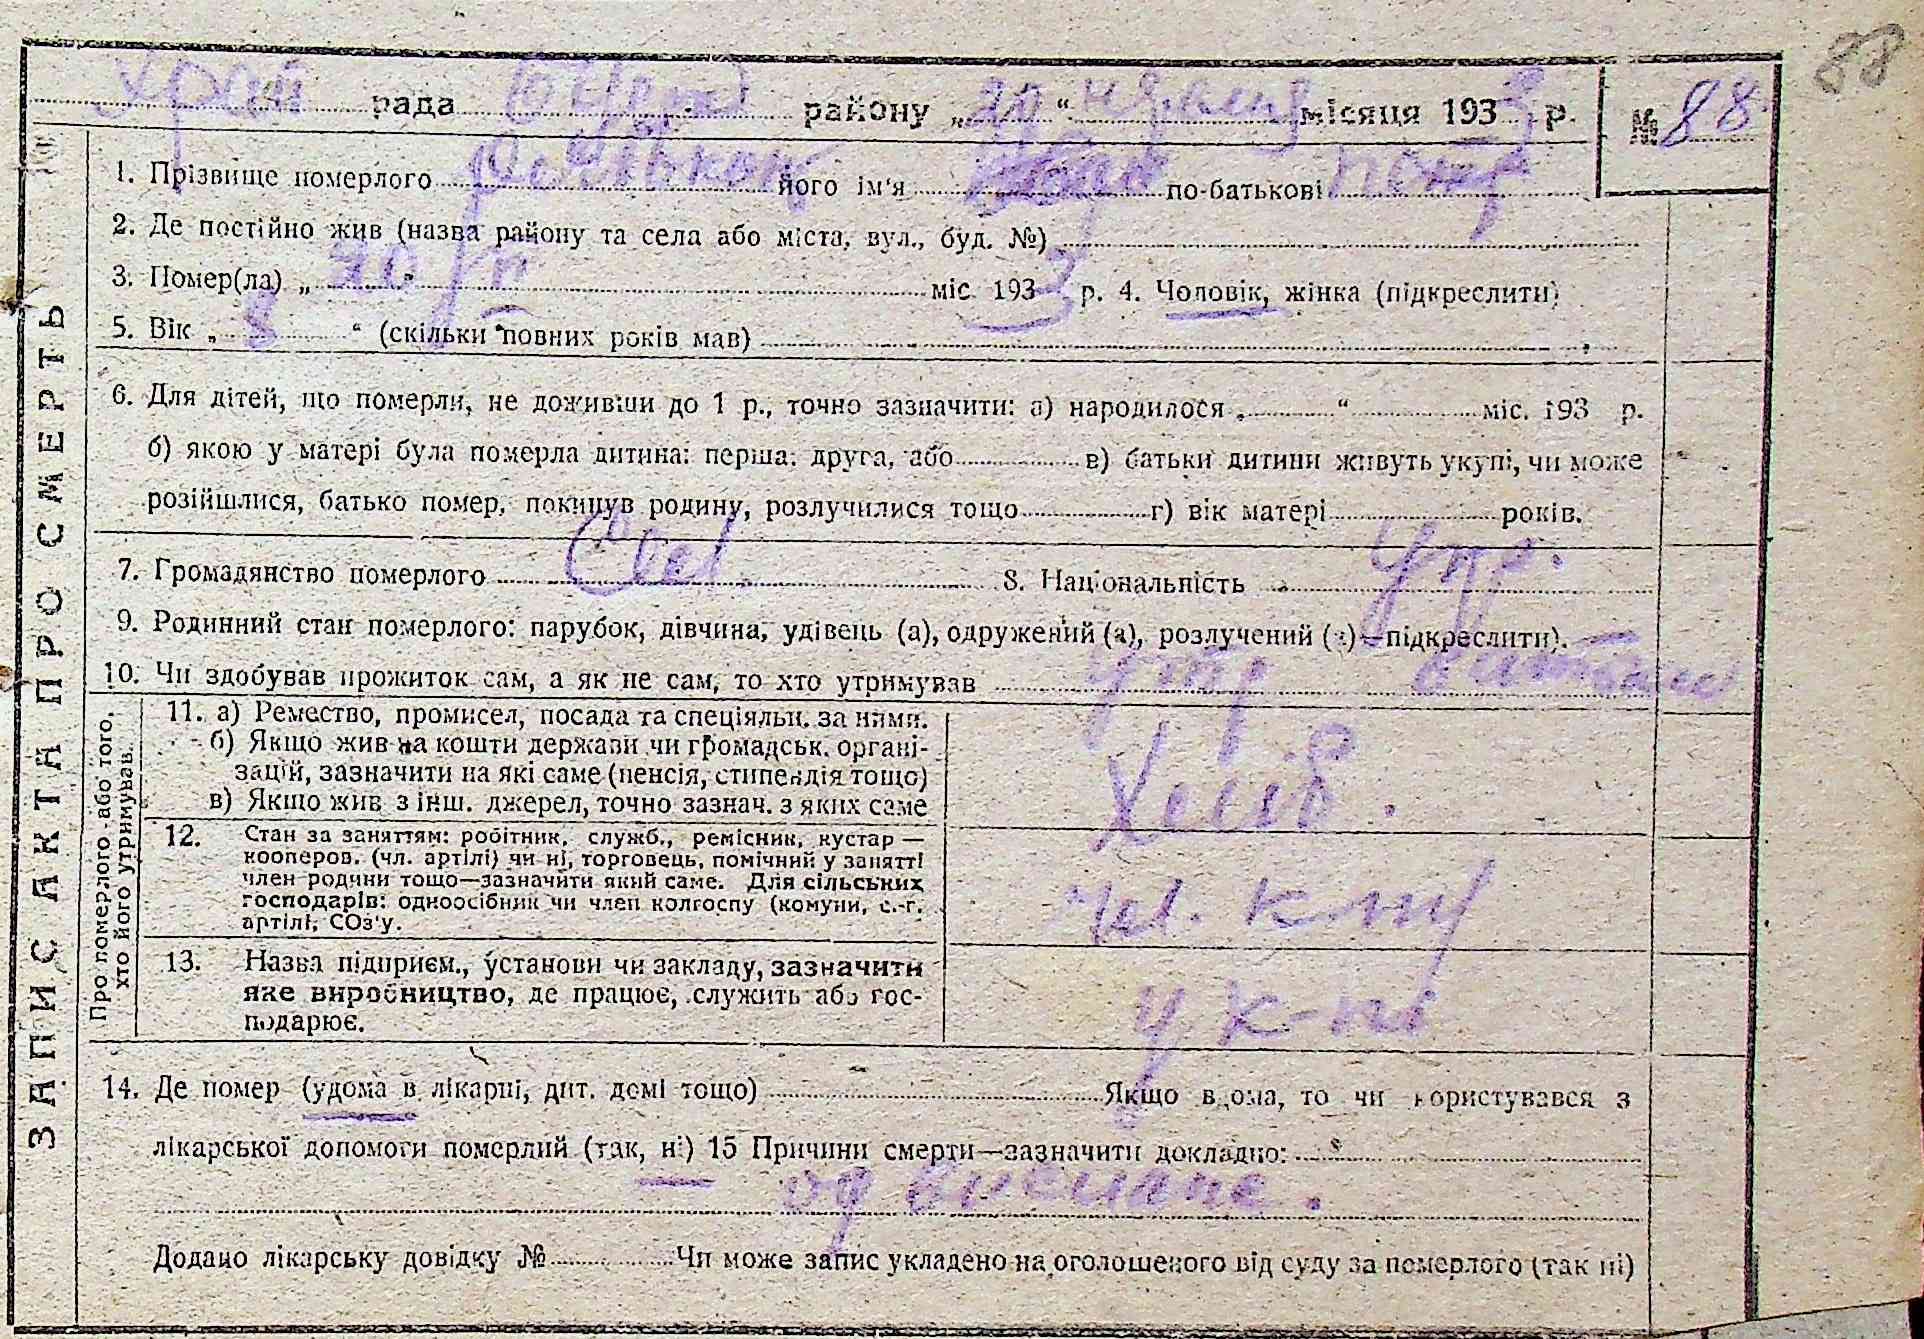 88
рада району „20“ місяця 1933 р. № 88
ЗАПИС АКТА ПРО СМЕРТЬ
1. Прізвище померлого його ім'я по-батькові
2. Де постійно жив (назва району та села або міста, вул., буд. №)
3. Помер(ла) „20“ міс. 1933 р. 4. Чоловік, жінка (підкреслити)
5. Вік „8“ (скільки повних років мав)
6. Для дітей, що померли, не доживши до 1 р., точно зазначити: а) народилося „ “ міс. 193 р.
б) якою у матері була померла дитина: перша, друга, або в) батьки дитини живуть укупі, чи може
розійшлися, батько помер, покинув родину, розлучилися тощо г) вік матері років.
7. Громадянство померлого 8. Національність Укр.
9. Родинний стан померлого: парубок, дівчина, удівець (а), одружений (а), розлучений (а)—підкреслити).
10. Чи здобував прожиток сам, а як не сам, то хто утримував утр.
Про померлого або того, хто його утримував.
11. а) Ремество, промисел, посада та спеціяльн. за ними.
б) Якщо жив на кошти держави чи громадськ. органі-
зацій, зазначити на які саме (пенсія, стипендія тощо)
в) Якщо жив з інш. джерел, точно зазнач. з яких саме
Хліб.
12. Стан за заняттям: робітник, служб., ремісник, кустар —
кооперов. (чл. артілі) чи ні, торговець, помічний у занятті
член родини тощо—зазначити який саме. Для сільських
господарів: одноосібник чи член колгоспу (комуни, с.-г.
артілі, СОЗ'у.
чл. к-пу
13. Назва підприєм., установи чи закладу, зазначити
яке виробництво, де працює, служить або гос-
подарює.
у к-пі
14. Де помер (удома в лікарні, дит. домі тощо) Якщо вдома, то чи користувався з
лікарської допомоги померлий (так, ні) 15 Причини смерти—зазначити докладно:
од
Додано лікарську довідку № Чи може запис укладено на оголошеного від суду за померлого (так ні)